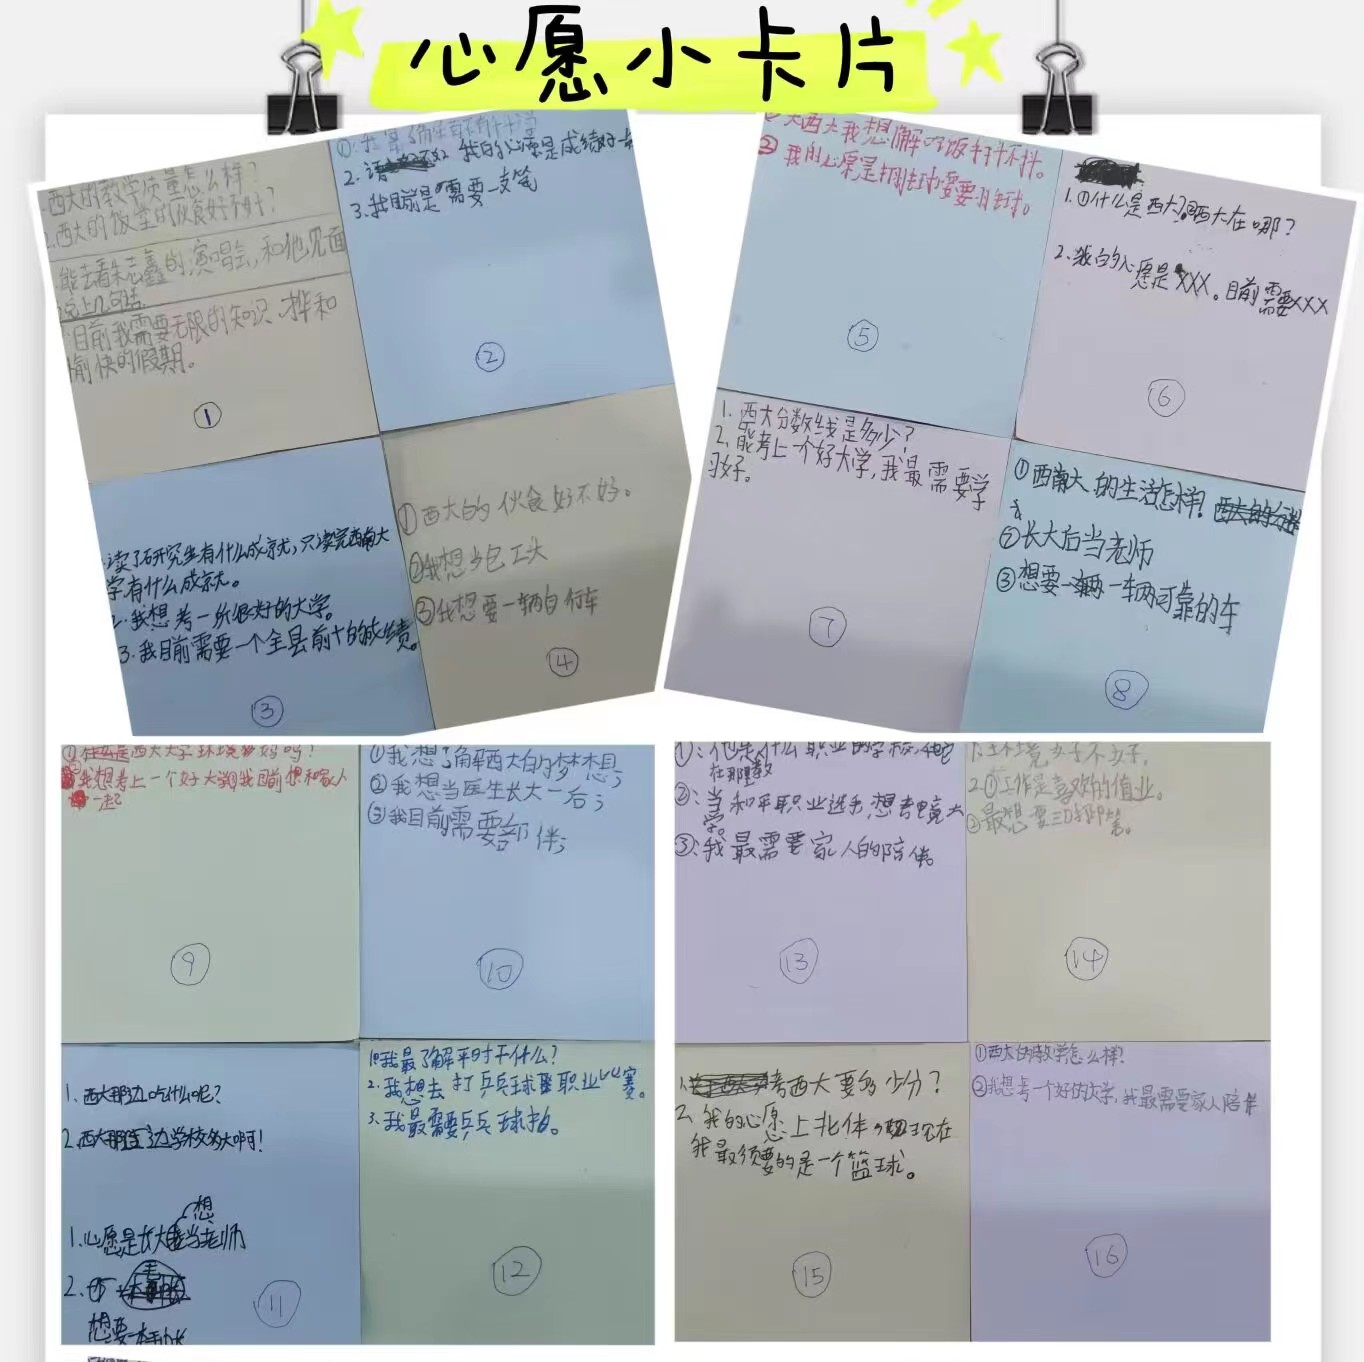 心愿小卡片
西大的教学质量怎么样?
2.西大的饭堂的伙食好不好?
能去看朱志鑫的演唱会,和他见面
说上几句话
目前我需要无限的知识、和
愉快的假期。
①
我的心愿是成绩好
2.
3.我目前是需要一支笔
②
读了研究生有什么成就,只读完西南大
学有什么成就。
2.我想考一所很好的大学。
3.我目前需要一个全县前十的成绩。
③
①西大的伙食好不好。
②我想当包工头
③我想要一辆自行车
④
西大我想解吃饭打不抖。
②我的心愿是打排球需要排球。
⑤
1.①什么是西大?②西大在哪?
2.我的心愿是XXX。目前需要XXX
⑥
1.西大分数线是多少?
2.能考上一个好大学,我最需要学
习好。
⑦
①西南大的生活怎样!
②长大后当老师
③想要一车两可靠的车
⑧
①西大大学环境好吗?
②我想考上一个好大学③我目前想和家人
一起
⑨
①我想了解西大的梦想;
②我想当医生长大一后;
③我目前需要部伴;
⑩
1.西大那边吃什么呢?
2.西大那边学校多大啊!
想
1.心愿是长大当老师
2.
想要一本
11
1.我最了解平时干什么?
2.我想去打乒乓球职业比赛。
3.我最需要乒乓球拍。
12
①:他是什么职业的学校,他
在那里教
②:当和平职业选手,想考电竞大
学。
③:我最需要家人的陪伴。
13
1.环境好不好,
2.①工作是喜欢的值业。
②最想要
14
1.考西大要多少分?
2.我的心愿上北体,现在
我最须要的是一个篮球。
15
①西大的教学怎么样!
②我想考一个好的大学,我最需要家人陪伴
16